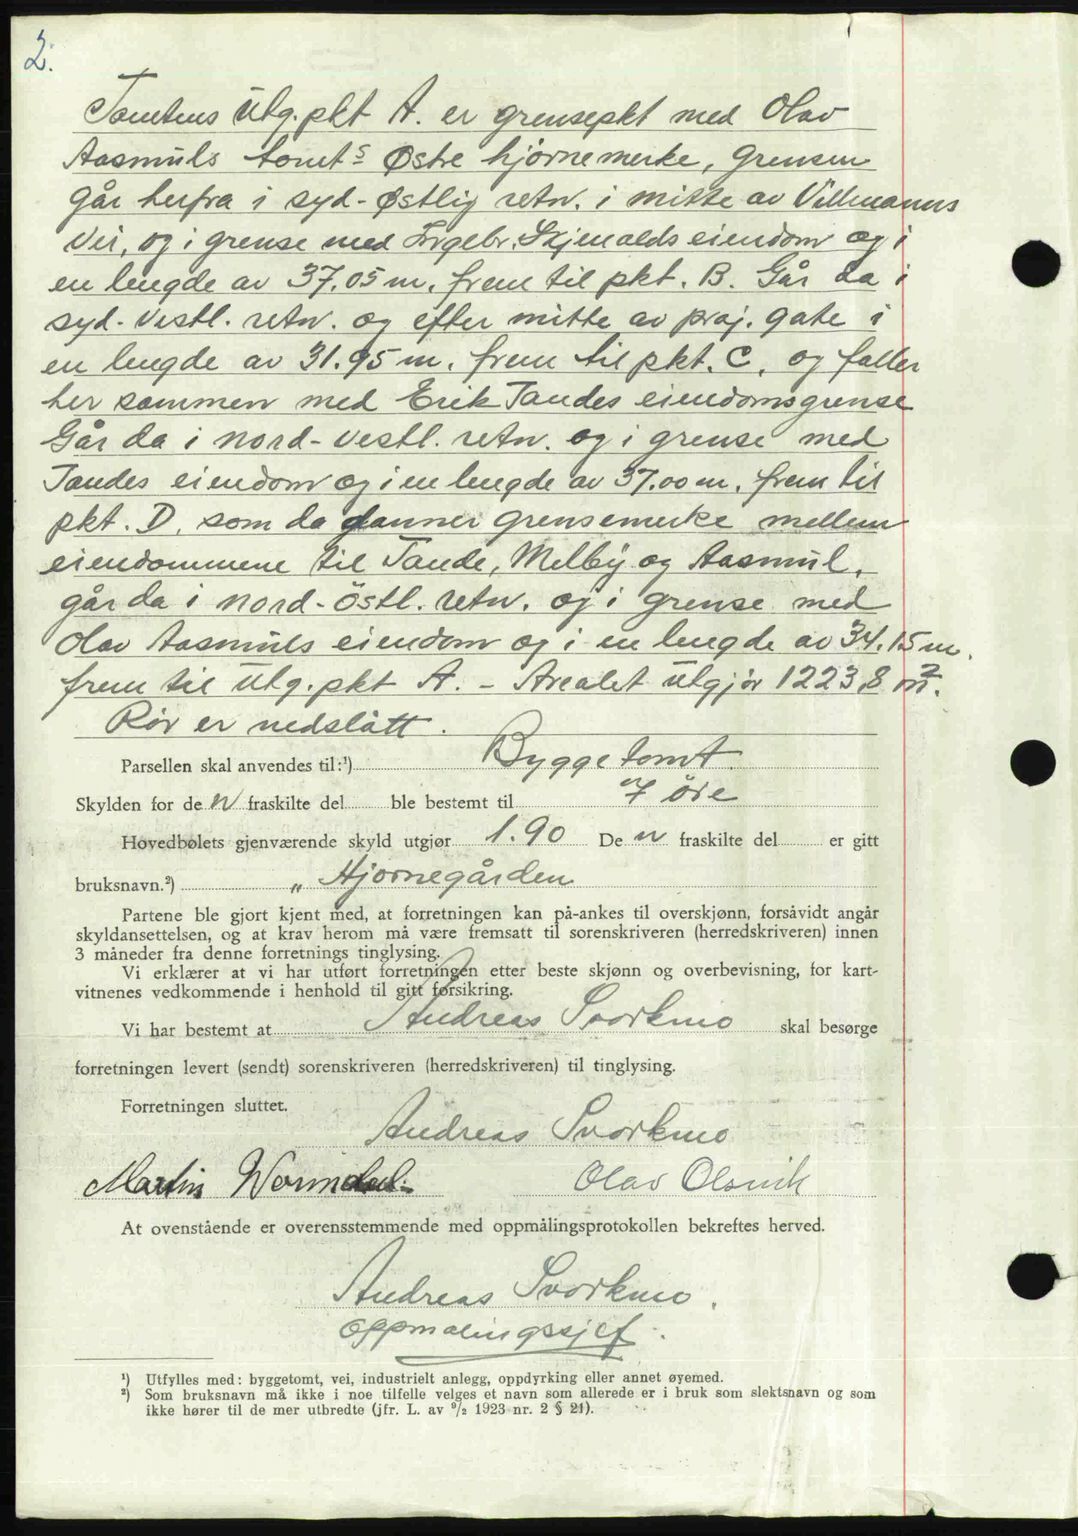 2.
Tomtens Utg. pkt A. er grensepkt med Olav
Aasmuls tomts Østre hjørnemerke, grensen
går herfra i syd-Østlig retn. i mitte av Villmanns
vei, og i grense med Ingebr. Skjenalds eiendom og i
en lengde av 37.05 m. frem til pkt. B. Går da i
syd-vestl. retn. og efter mitte av proj. gate i
en lengde av 31.95 m. frem til pkt. C, og faller
her sammen med Erik Tandes eiendomsgrense
Går da i nord-vestl. retn. og i grense med
Tandes eiendom og i en lengde av 37.00 m. frem til
pkt. D, som da danner grensemerke mellem
eiendommene til Tande, Melby og Aasmul,
går da i nord-östl. retn. og i grense med
Olav Aasmuls eiendom og i en lengde av 34.15 m.
frem til Utg. pkt A. - Arealet Utgjør 1223,8 m².
Rör er nedslått.
Parsellen skal anvendes til:¹) Byggetomt
Skylden for den fraskilte del ble bestemt til 7 øre
Hovedbølets gjenværende skyld utgjør 1.90 Den fraskilte del er gitt
bruksnavn.²) „ Hjørnegården
Partene ble gjort kjent med, at forretningen kan på-ankes til overskjønn, forsåvidt angår
skyldansettelsen, og at krav herom må være fremsatt til sorenskriveren (herredskriveren) innen
3 måneder fra denne forretnings tinglysing.
Vi erklærer at vi har utført forretningen etter beste skjønn og overbevisning, for kart-
vitnenes vedkommende i henhold til gitt forsikring.
Vi har bestemt at Andreas Svorkmo skal besørge
forretningen levert (sendt) sorenskriveren (herredskriveren) til tinglysing.
Forretningen sluttet.
Andreas Svorkmo
Martin Wormdal. Olav Olsvik
At ovenstående er overensstemmende med oppmålingsprotokollen bekreftes herved.
Andreas Svorkmo.
oppmålingssjef.
¹) Utfylles med: byggetomt, vei, industrielt anlegg, oppdyrking eller annet øyemed.
²) Som bruksnavn må ikke i noe tilfelle velges et navn som allerede er i bruk som slektsnavn og som
ikke hører til de mer utbredte (jfr. L. av ⁹/₂ 1923 nr. 2 § 21).